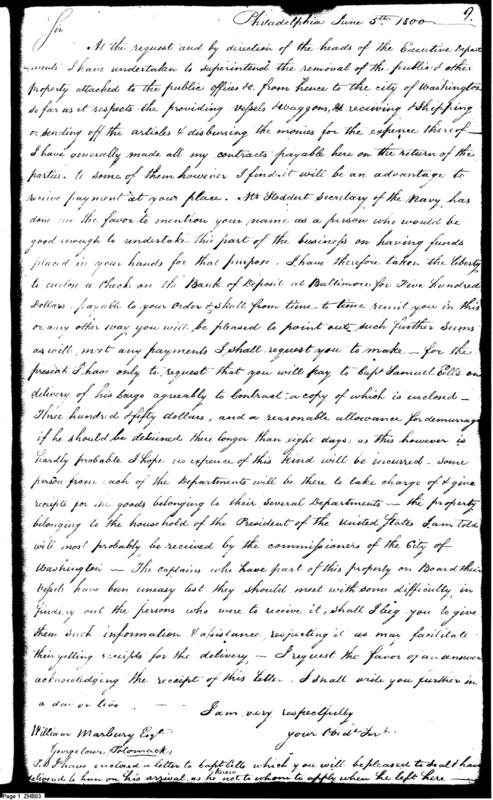 9.
Philadelphia June 5th 1800
Sir
At the request and by direction of the heads of the Executive Depart
-ments I have undertaken to superintend the removal of the public & other
property attached to the public offices &c. from hence to the city of Washington
so far as it respects the providing vessels & waggons, receiving & shipping
or sending off the articles & disbursing the monies for the expence thereof —
I have generally made all my contracts payable here on the return of the
parties. to some of them however I find it will be an advantage to
receive payment at your place. Mr Stoddert Secretary of the Navy has
done me the favor to mention your name as a person who would be
good enough to undertake this part of the business on having funds
placed in your hands for that purpose. I have therefore taken the liberty
to enclose a Check on the Bank of Deposit at Baltimore for Five Hundred
Dollars. payable to your order & shall from time to time remit you in this
or any other way you will be pleased to point out, such further sums
as will meet any payments I shall request you to make — for the
present I have only to request that you will pay to Capt Samuel Eells on
delivery of his Cargo agreably to Contract: a copy of which is enclosed —
Three hundred & fifty dollars, and a reasonable allowance for demurrage
if he should be detained there longer than eight days, as this however is
hardly probable I hope no expence of this kind will be incurred — some
person from each of the Departments will be there to take charge of & give
receipts for the goods belonging to their several Departments — the property
belonging to the household of the President of the United States I am told
will most probably be received by the commissioners of the City of
Washington — The captains who have part of this property on Board their
vessels have been uneasy lest they should meet with some difficulty in
finding out the persons who were to receive it, shall I beg you to give
them such information & assistance respecting it as may facilitate
their getting receipts for the delivery — I request the favor of an answer
acknowledging the receipt of this Letter. I shall write you further in
a day or two —
I am very respectfully
your Obdt Servt.
William Marbury Esqr
Georgetown Potomack
P.S I have enclosed a letter to Capt Eells which you will be pleased to seal & have
delivered to him on his arrival, as he knew not to whom to apply when he left here —
Page 1 ZHB03